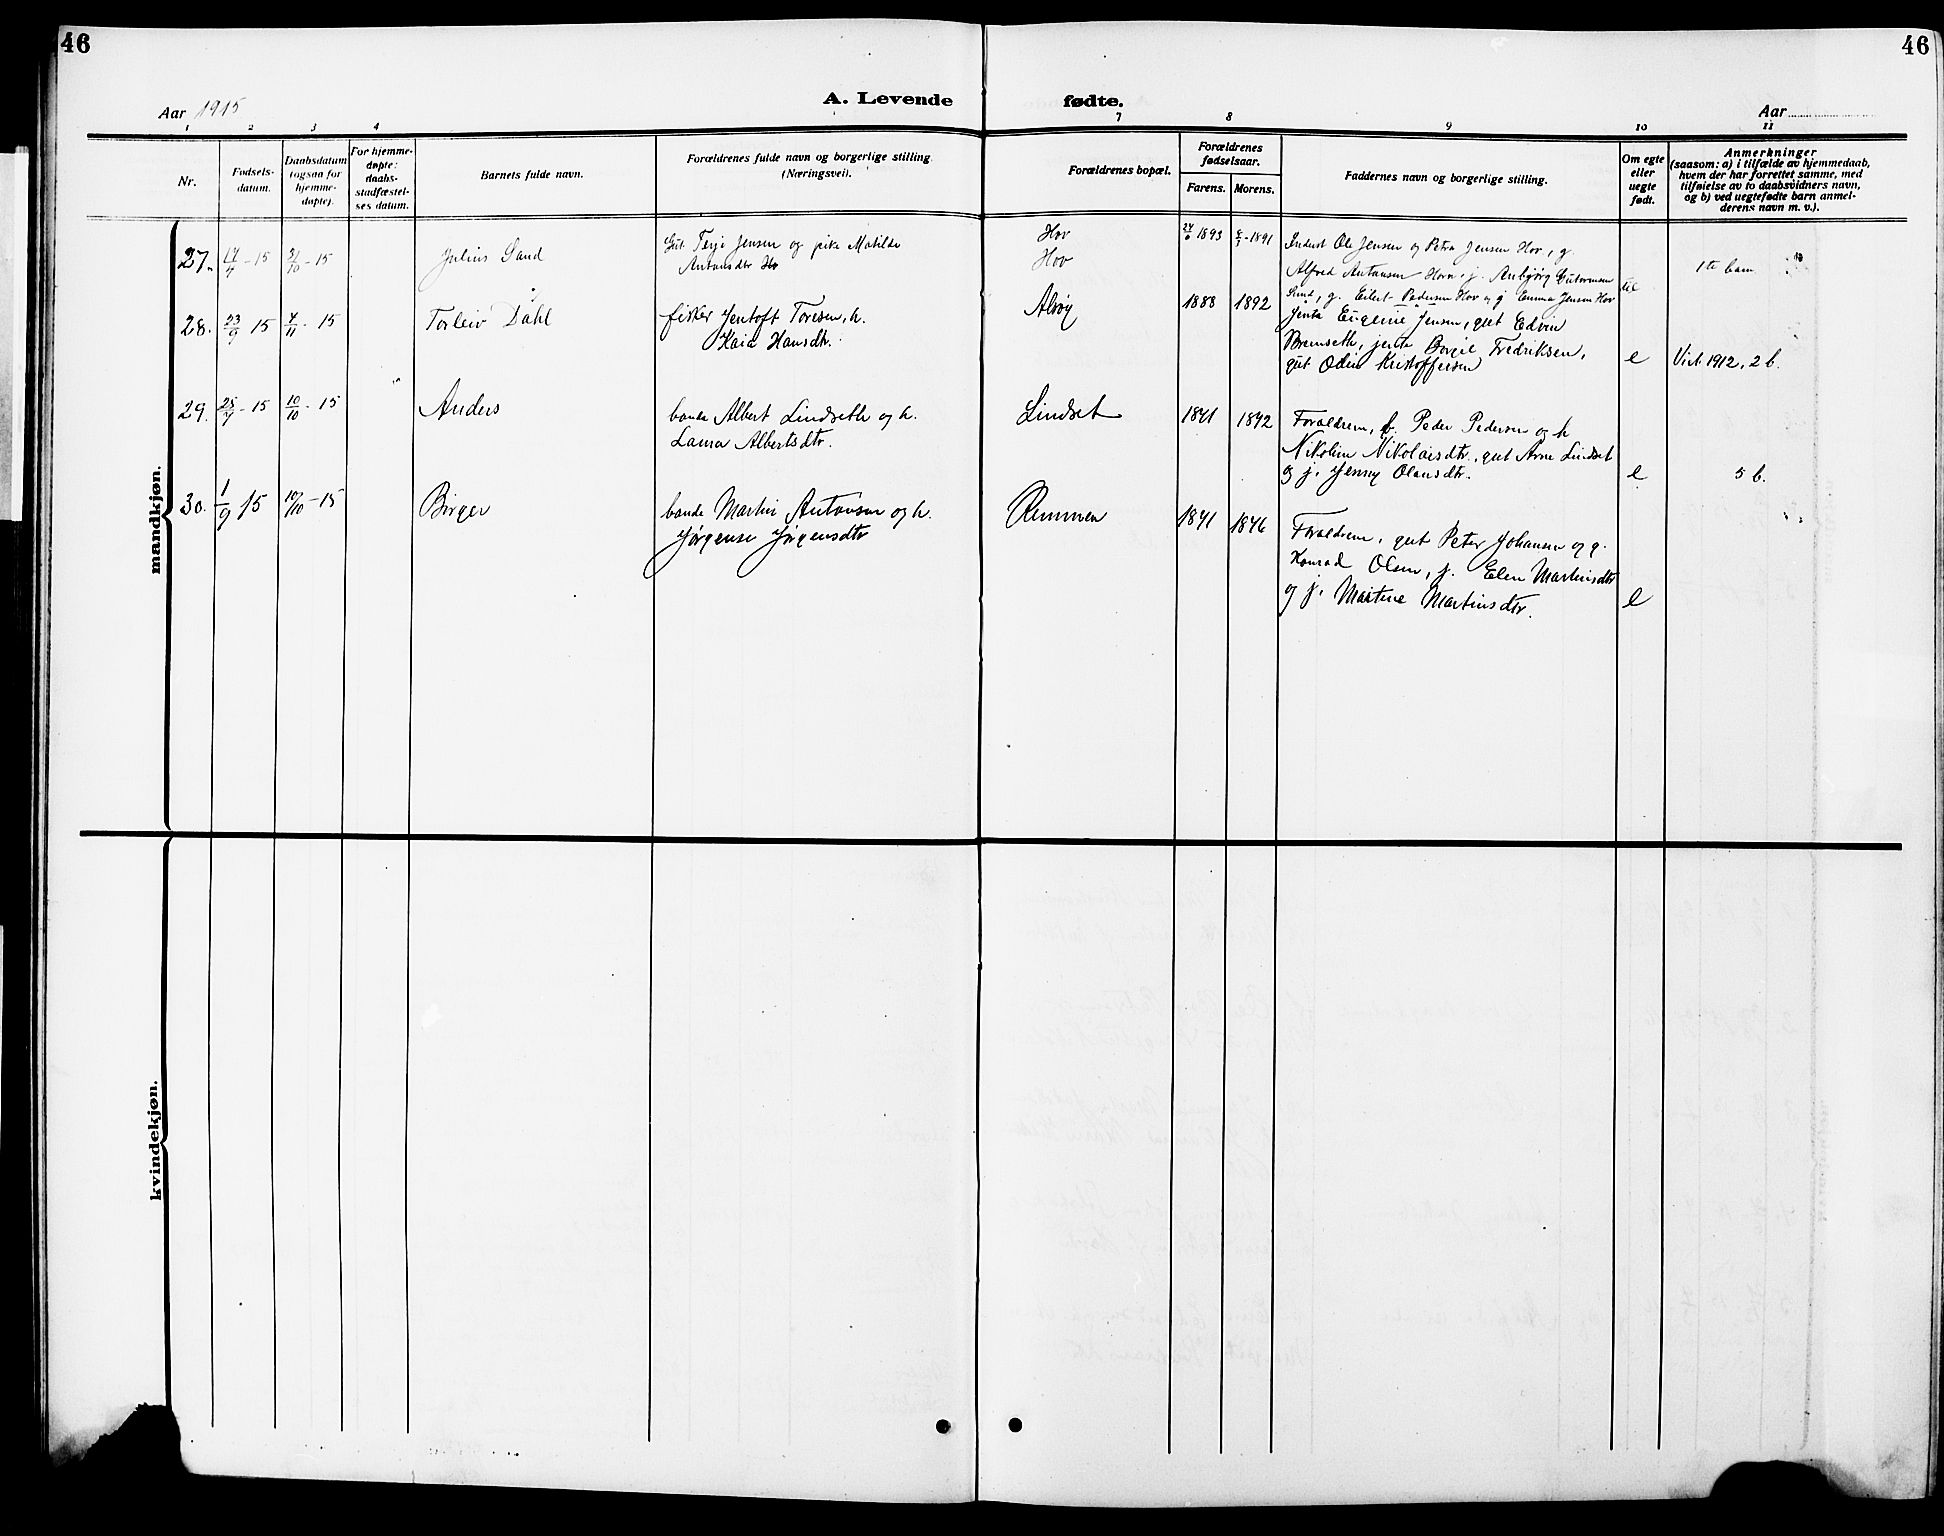 46
46
Aar 1915
A. Levende fødte.
Aar
1 2 3 4 7 8 9 10 11
Nr.
Fødsels-
datum.
Daabsdatum
(ogsaa for
hjemme-
døpte).
For hjemme-
døpte:
daabs-
stadfæstel-
ses datum.
Barnets fulde navn.
Forældrenes fulde navn og borgerlige stilling.
(Næringsvei).
Forældrenes bopæl.
Forældrenes
fødselsaar.
Farens. Morens.
Faddernes navn og borgerlige stilling.
Om egte
eller
uegte
født.
Anmerkninger
(saasom: a) i tilfælde av hjemmedaab,
hvem der har forrettet samme, med
tilføielse av to daabsvidners navn,
og b) ved uegtefødte barn anmel-
derens navn m. v.).
mandkjøn.
27. - 15 31/10 - 15
Julius Sand
Gut Terje Jensen og pike Matilde
Antonsdtr Hov
Hov
Hov
1893 1891
Inderst Ole Jensen og Petra Jensen Hov, g.
Alfred Antonsen Hovn, j. Anbjørg Guttormsen
Sund, g. Eilert Pedersen Hov og j Emma Jensen Hov
1te barn
28. 23/9 15 7/11 - 15
Torleiv Dahl
fisker Jentoft Toresen, h.
Kaia Hansdtr.
Alvøy
1888 1892
Jenta Eugenie Jensen, gut Edvin
Bremseth, jenta Borgil Fredriksen,
gut Odin Kristoffersen
e
Viet 1912, 2 b.
29. 25/7 - 15 10/10 - 15
Anders
bonde Albert Lindseth og h.
Laura Albertsdtr.
Lindset
1871 1872
Forældrene, f. Peder Pedersen og h
Nikoline Nikolaisdtr., gut Arne Lindset
og j. Jenny Olausdtr.
e
5 b.
30. 1/9 15 10/10 - 15
Birger
bonde Martin Antonsen og h.
Jørgense Jørgensdtr
Remmen
1871 1876
Forældrene, gut Peter Johansen og g.
Konrad Olsen, j. Elen Martinsdtr
og j. Martine Martinsdtr.
e
kvindekjøn.